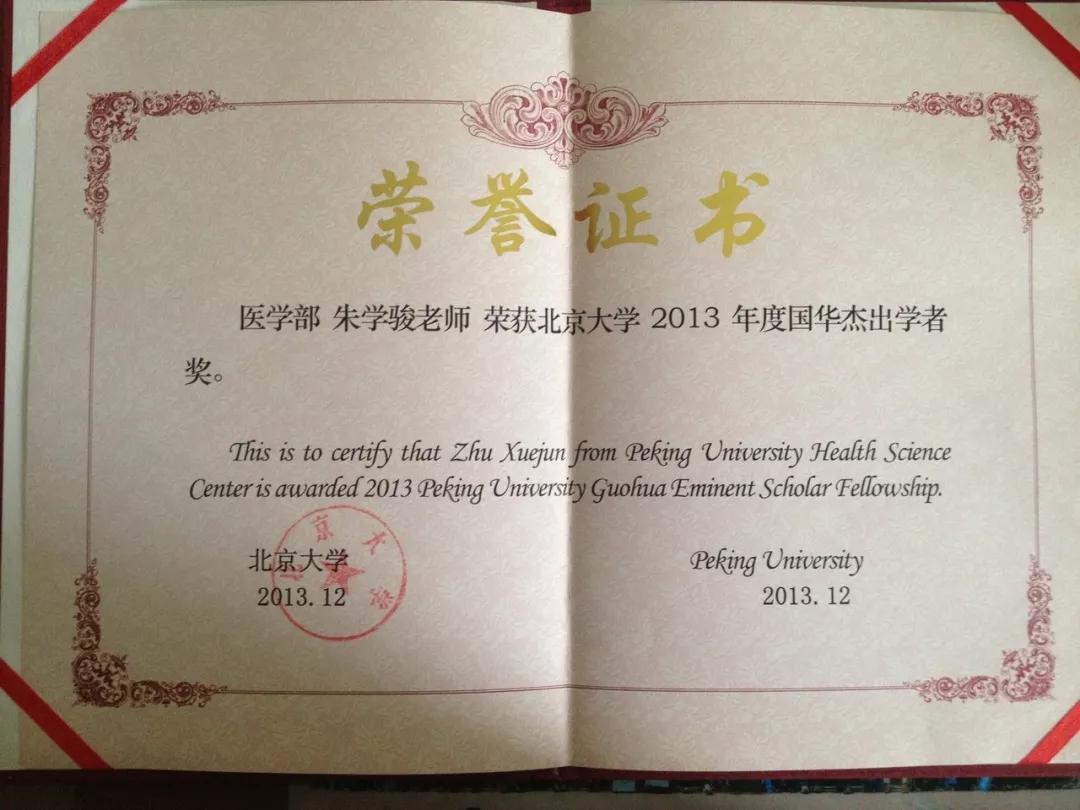 荣誉证书
医学部 朱学骏老师 荣获北京大学 2013 年度国华杰出学者
奖。
This is to certify that Zhu Xuejun from Peking University Health Science
Center is awarded 2013 Peking University Guohua Eminent Scholar Fellowship.
北京大学
2013.12
Peking University
2013.12
北京大学